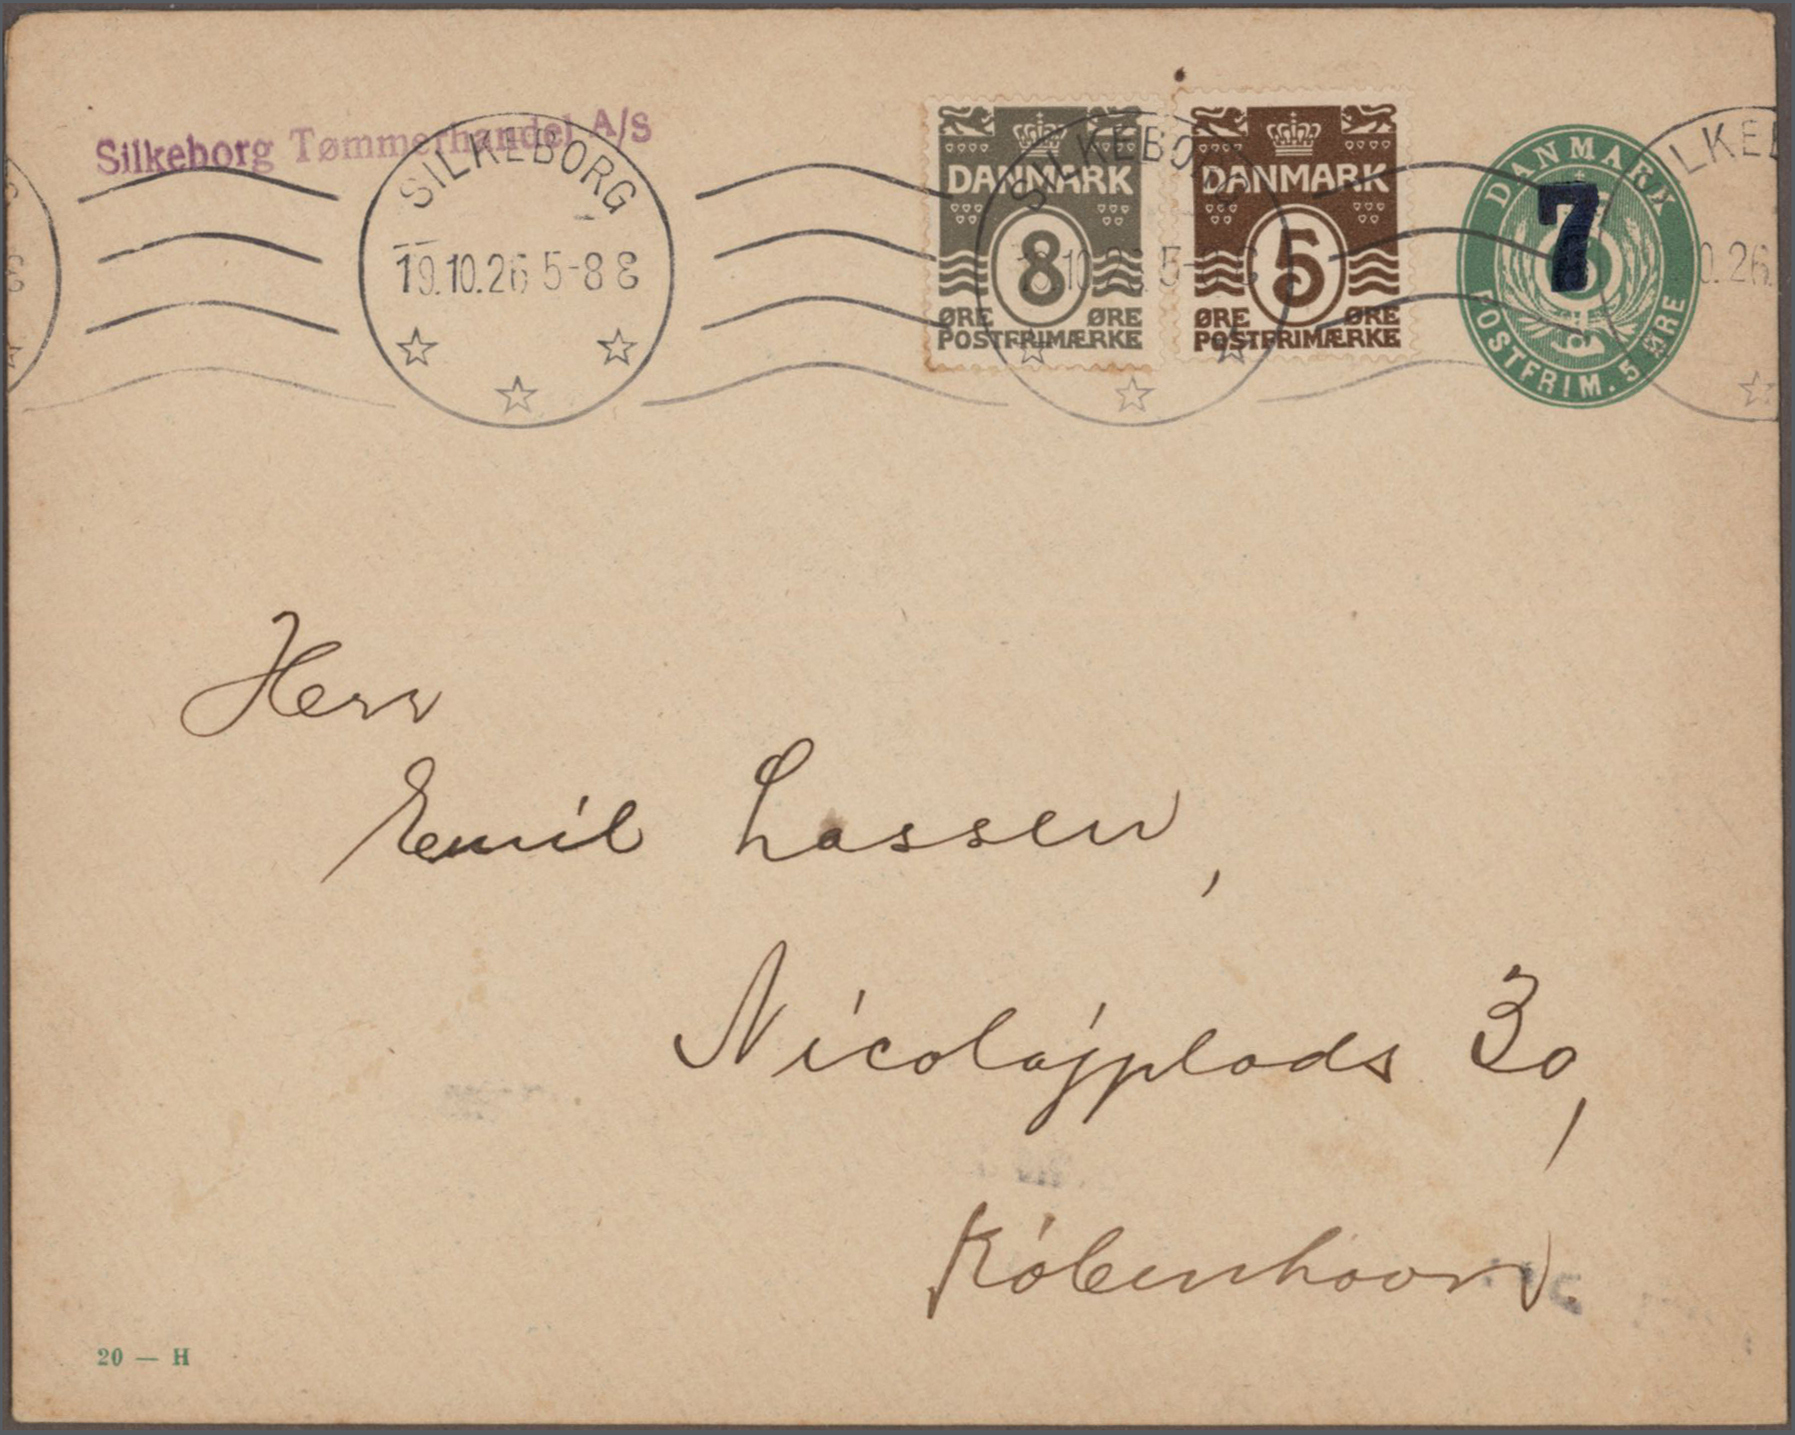 Silkeborg Tømmerhandel A/S
SILKEBORG
19.10.26 5-8 E
DANMARK
8
ØRE ØRE
POSTFRIMÆRKE
DANMARK
5
ØRE ØRE
POSTFRIMÆRKE
DANMARK
7
POSTFRIM. 5 ØRE
LKEB
0.26
Herr
Emil Lassen,
Nicolajplads 30,
København.
20 — H